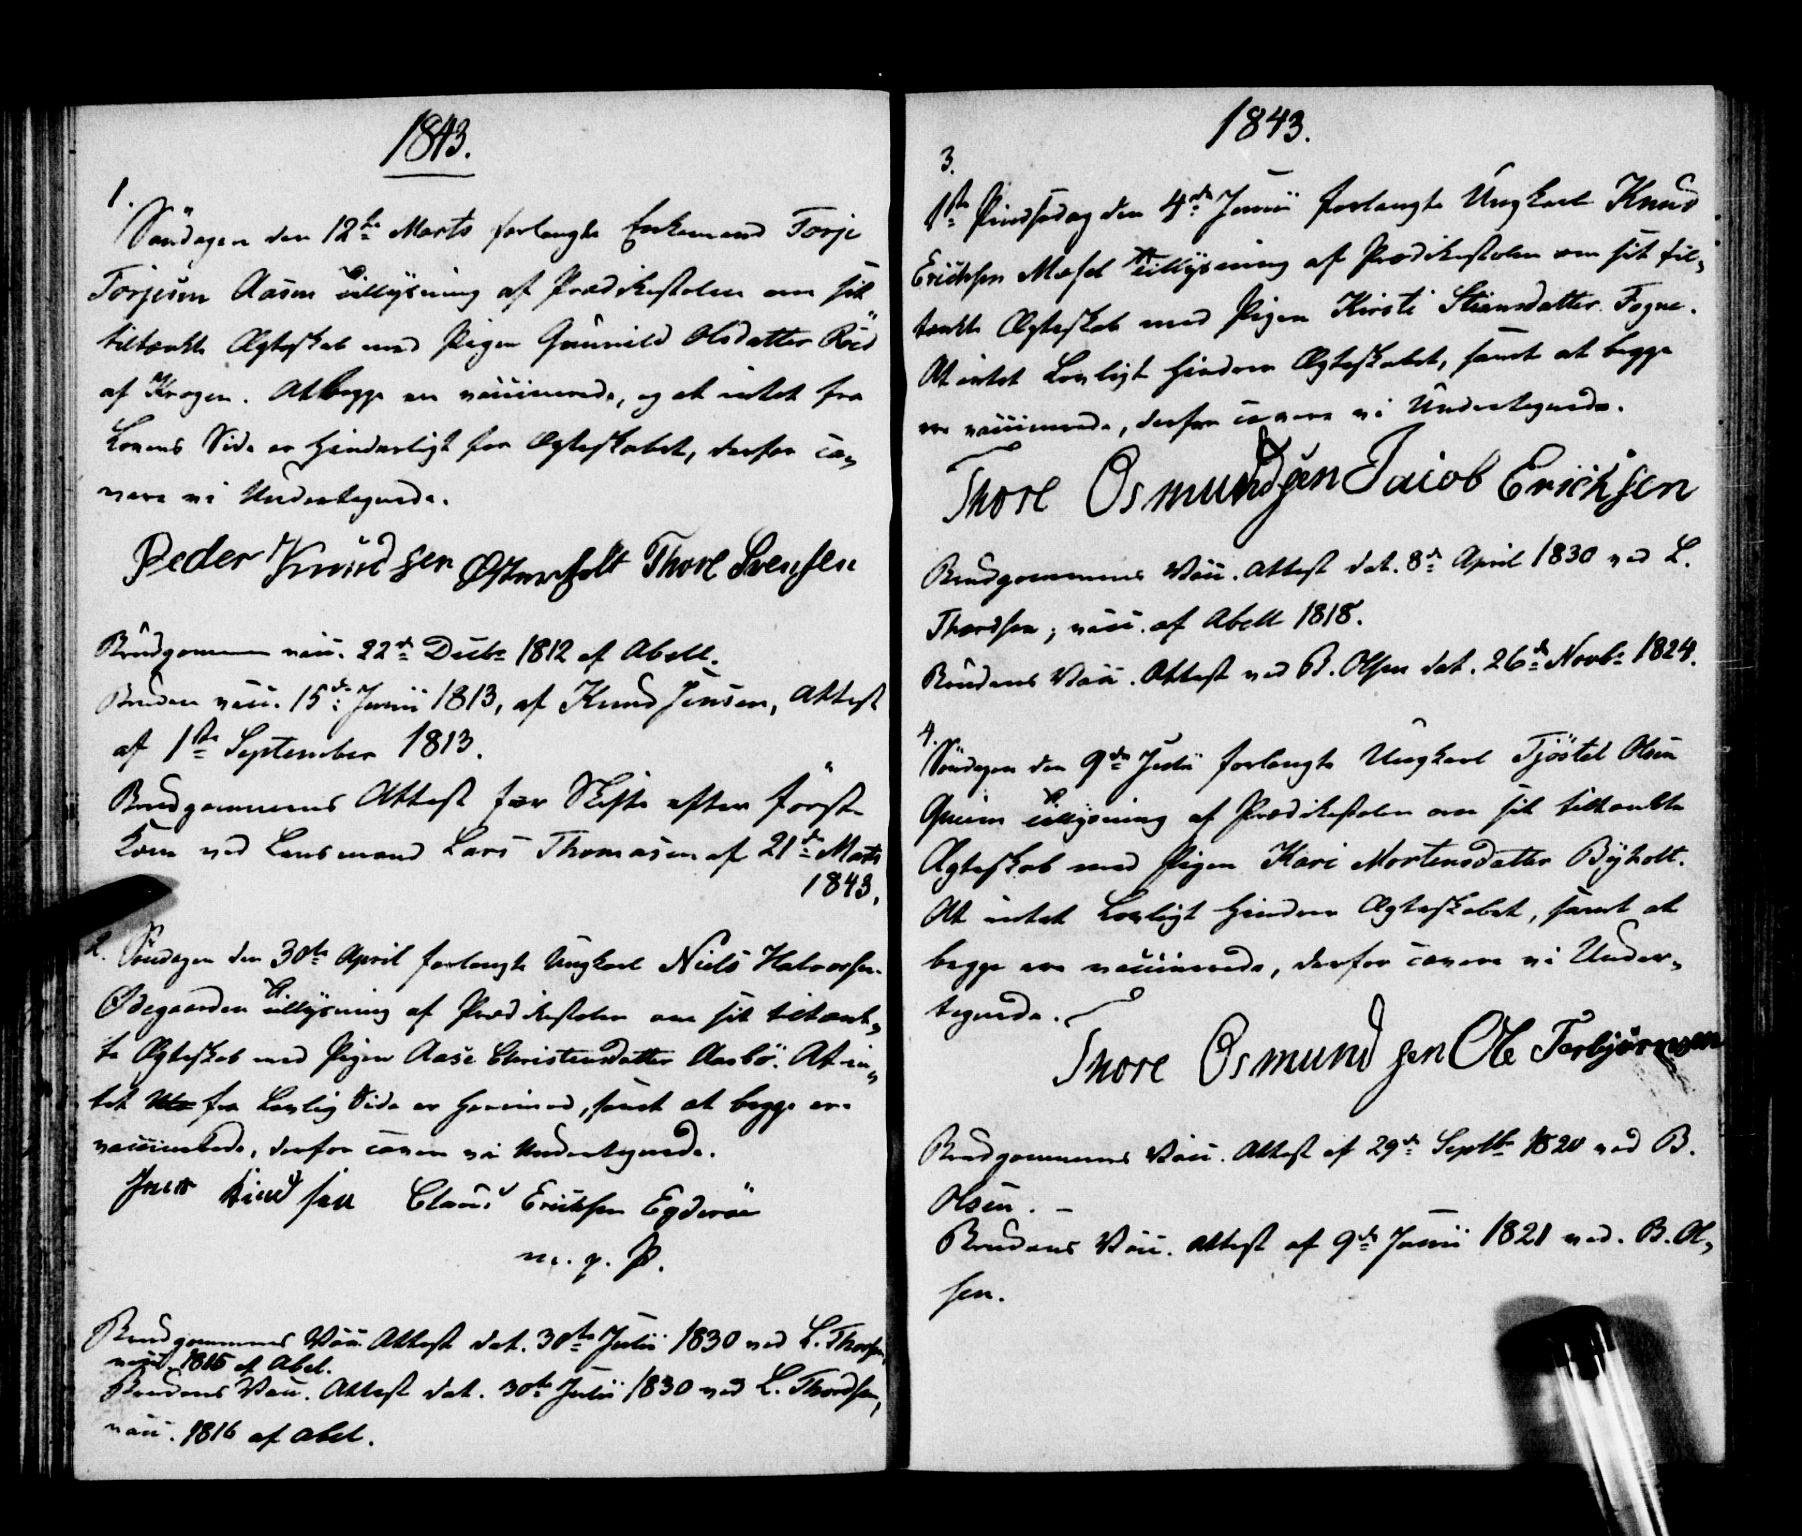 1843.
1.
Söndagen den 12te Marts forlangte Enkemand Torje
Torjesen Aasen Tillysning af Prædikestolen om sit
tiltænkte Ægteskab med Pigen Gunnild Olsdatter Röed
af Krogen. At begge ere vaccinerede, og at intet fra
Lovens Side er hinderligt for Ægteskabet, derfor ca„
vere vi Undertegnede.
Peder Knudsen Østerholt Thore Svensen
Brudgommen vacc. 22de Decbr 1812 af Abell.
Bruden vacc. 15de Junii 1813, af Knud Jensen, Attest
af 1ste September 1813.
Brudgommens Attest for Skifte efter förste
Kone ved Lensmand Lars Thomasen af 21de Marts
1843.
2. Söndagen den 30te April forlangte Ungkarl Niels Halvorsen
Ödegaarden Tillysning af Prædikestolen om sit tiltænk„
te Ægteskab med Pigen Aase Christensdatter Aasbö. At in„
tet fra Lovlig Side er herimod, samt at begge ere
vaccinerede, derfor cavere vi Undertegnede.
Knudsen Claus Ericksen Egderöe
m. p. P.
Brudgommens Vacc. Attest dat. 30te Julii 1830 ved L. Thordsen,
vacc. 1815 af Abel.
Brudens Vacc. Attest dat. 30te Julii 1830 ved L. Thordsen,
vacc. 1816 af Abel.
1843.
3.
1ste Pindsedag den 4de Junii forlangte Ungkarl Knud
Ericksen Moesel Tillysning af Prædikestolen om sit til„
tænkte Ægteskab med Pigen Kirsti Steensdatter Fogne.
At intet Lovligt hindrer Ægteskabet, samt at begge
ere vaccinerede, derfor cavere vi Undertegnede.
Thore Osmundsen Jacob Erichsen
Brudgommens Vacc. Attest dat. 8de April 1830 ved L.
Thordsen, vacc. af Abell 1818.
Brudens Vacc. Attest ved B. Olsen dat. 26de Novbr 1824.
4.
Söndagen den 9de Julii forlangte Ungkarl Tjöstel Olsen
Tillysning af Prædikestolen om sit tiltænkte
Ægteskab med Pigen Kari Mortensdatter Byholt.
At intet Lovligt hindrer Ægteskabet, samt at
begge ere vaccinerede, derfor cavere vi Under„
tegnede.
Thore Osmundsen Ole Terbjörnsen
Brudgommens Vacc. Attest af 29de Septbr 1820 ved B.
Olsen. –
Brudens Vacc. Attest af 9de Junii 1821 ved. B. Ol„
sen.